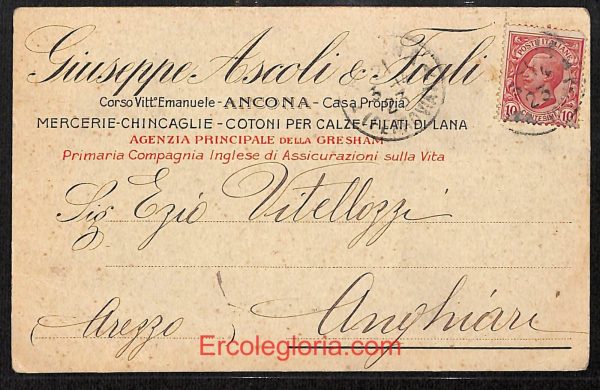 Giuseppe Ascoli & Figli
Corso Vittº Emanuele - ANCONA - Casa Propria
MERCERIE-CHINCAGLIE - COTONI PER CALZE-FILATI DI LANA
AGENZIA PRINCIPALE DELLA GRESHAM
Primaria Compagnia Inglese di Assicurazioni sulla Vita
POSTE ITALIANE
10 10
Sig Ezio Vitellozzi
(Arezzo) Anghiari
Ercolegloria.com